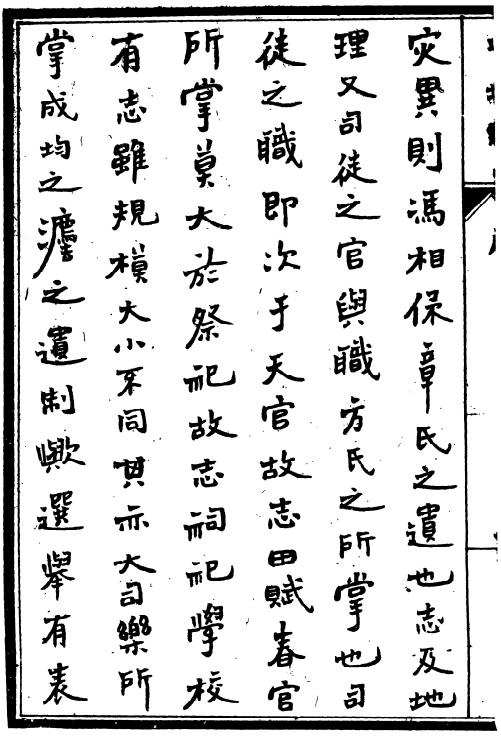 灾異則馮相保章氏之遺也志及地
理又司徒之官與職方氏之所掌也司
徒之職即次于天官故志田賦春官
所掌莫大於祭祀故志祠祀學校
有志雖規模大小不同其亦大司樂所
掌成均之灋之遺制歟選舉有表